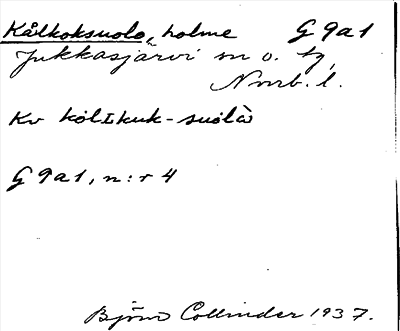 Kålkoksuolo, holme G 9a1
Jukkasjärvi sn o. tg,
Nmrb. l.
Kv kölɪkuk-suolò
G 9a1, n:r 4
Björn Collinder 1937.